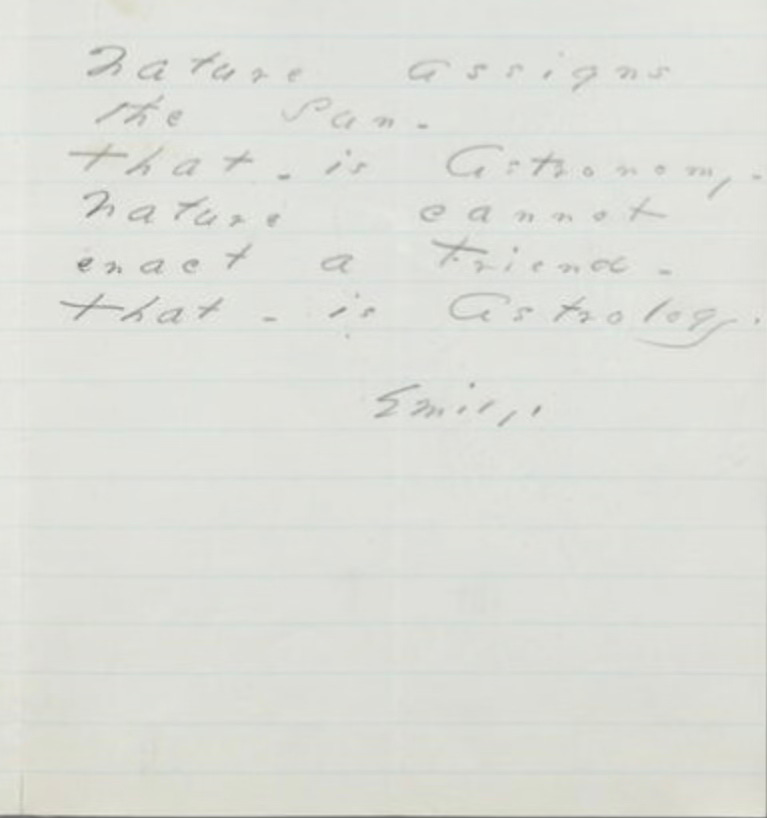 Nature assigns
the Sun -
that - is Astronomy -
Nature cannot
enact a Friend -
that - is Astrology.
Emily.